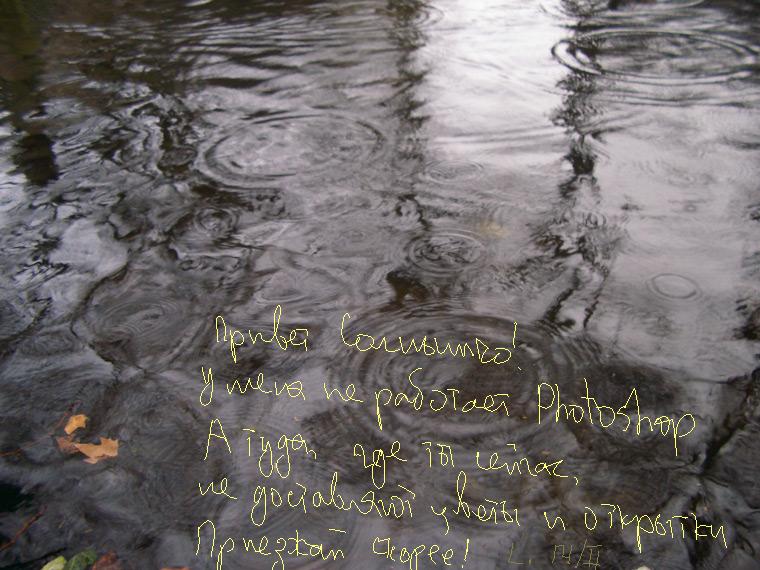 Привет Солнышко!
У меня не работает Photoshop
А туда, где ты сейчас,
не доставляют цветы и открытки
Приезжай скорее!